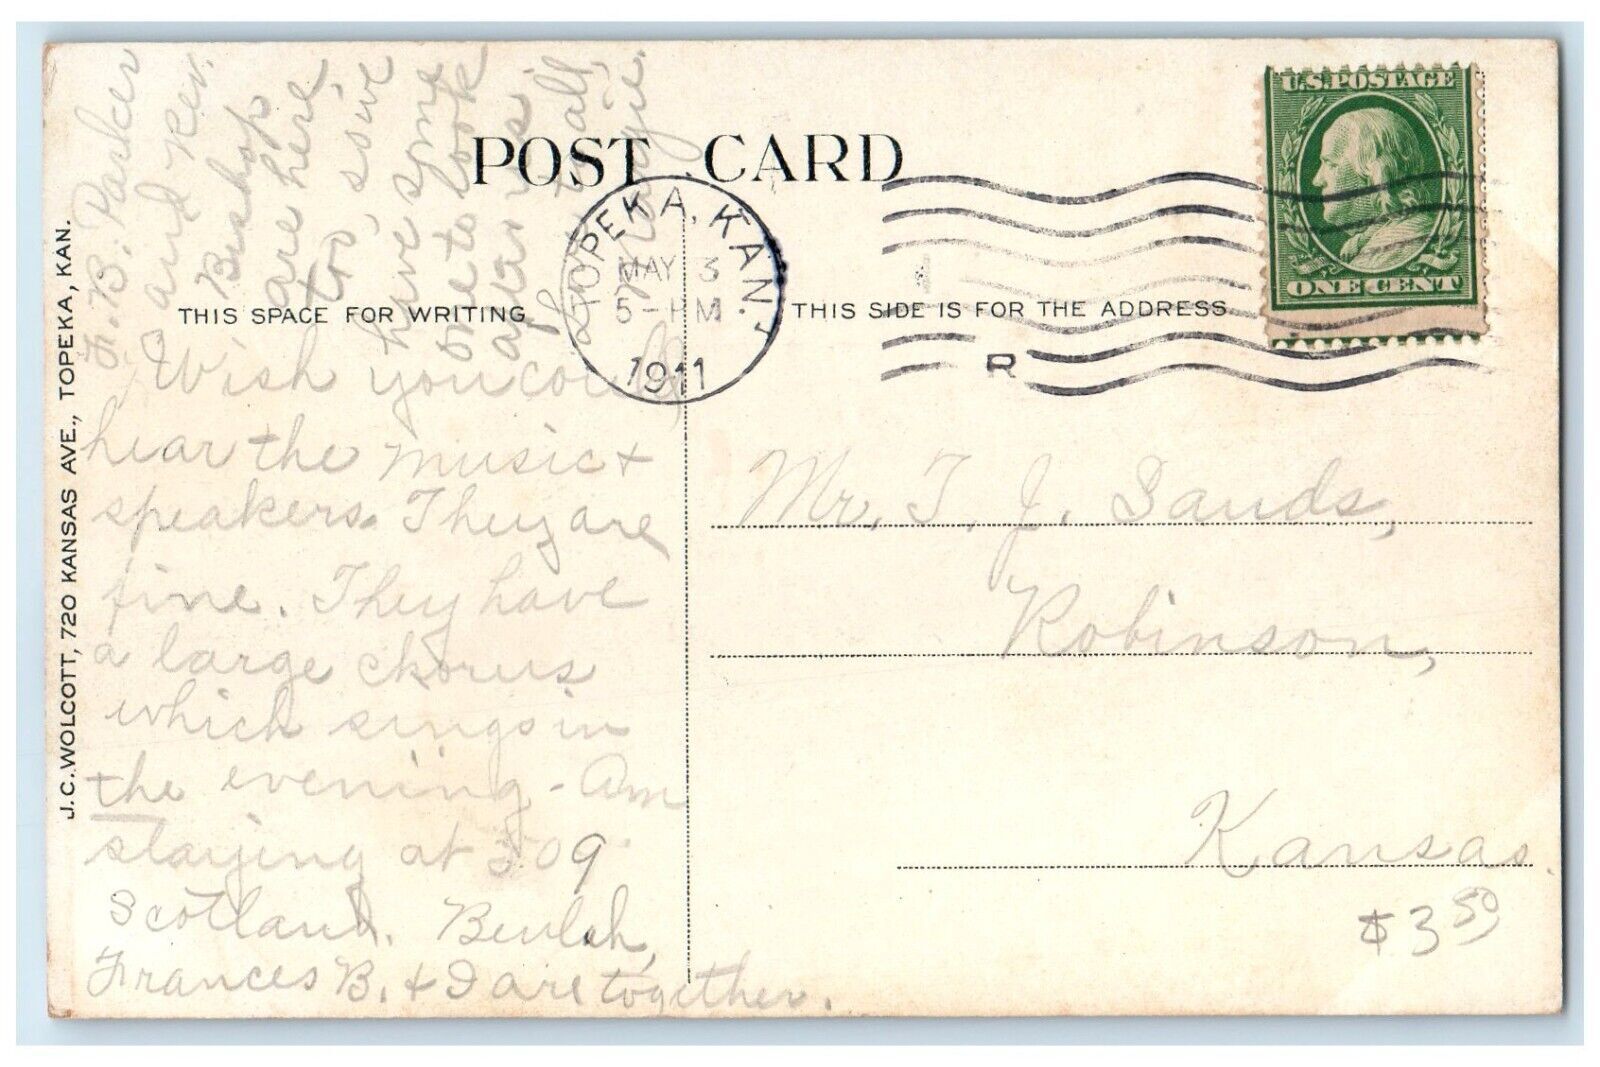 POST CARD
U.S. POSTAGE
ONE CENT
TOPEKA, KAN.
MAY 3
5-PM
1911
R
THIS SPACE FOR WRITING
THIS SIDE IS FOR THE ADDRESS
J.C. WOLCOTT, 720 KANSAS AVE., TOPEKA, KAN.
Wish you could
hear the music +
speakers. They are
fine. They have
a large chorus
which sings in
the evening - Am
staying at 309
Scotland. Beulah,
Frances B. + I are together.
F. B. Parker
and Rev.
Bishop
are here
too, so we
have some
one to look
after us
to all,
Margie.
Mr. T. J. Sands,
Robinson,
Kansas.
$3.50